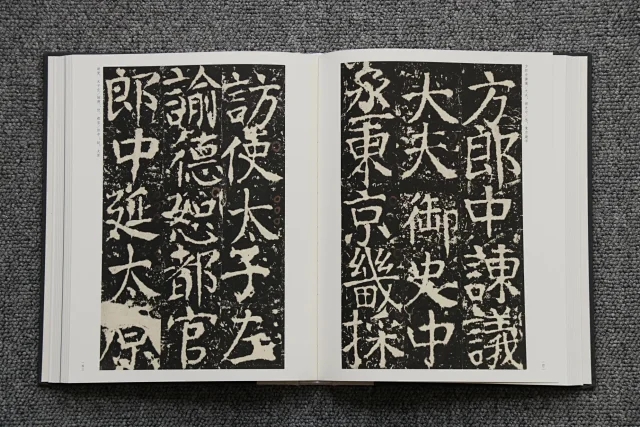 方郎中諫議
大夫御史中
丞東京畿採
訪使太子左
諭德恕都官
郎中延太原